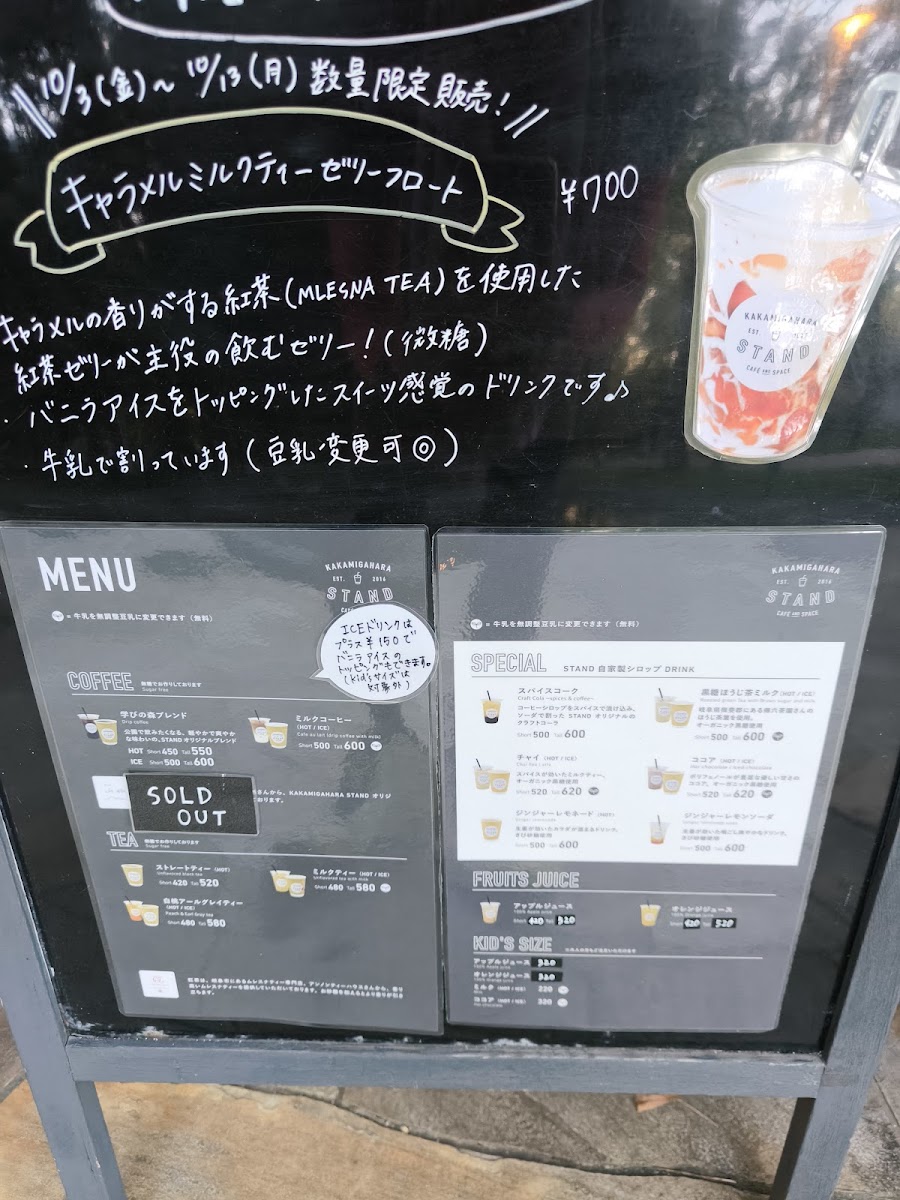 10/3(金)~10/13(月) 数量限定販売!
キャラメルミルクティーゼリーフロート
¥700
キャラメルの香りがする紅茶(MLESNA TEA)を使用した
紅茶ゼリーが主役の飲むゼリー!(微糖)
・バニラアイスをトッピングしたスイーツ感覚のドリンクです♪
・牛乳で割っています(豆乳変更可◎)
KAKAMIGAHARA
EST.
STAND
CAFÉ AND SPACE
MENU
KAKAMIGAHARA
EST. 2016
STAND
= 牛乳を無調整豆乳に変更できます(無料)
ICEドリンクは
プラス¥150で
バニラアイスの
トッピングもできます。
(kid'sサイズは
対象外)
COFFEE 無糖でお作りしております
Sugar free
学びの森ブレンド
Drip coffee
公園で飲みたくなる、軽やかで爽やか
な味わいの、STAND オリジナルブレンド
HOT Short 450 Tall 550
ICE Short 500 Tall 600
ミルクコーヒー
(HOT / ICE)
Cafe au lait (drip coffee with milk)
Short 500 Tall 600
SOLD
OUT
さんから、KAKAMIGAHARA STAND オリジ
おります。
TEA 無糖でお作りしております
Sugar free
ストレートティー (HOT)
Unflavored black tea
Short 420 Tall 520
ミルクティー (HOT / ICE)
Unflavored tea with milk
Short 480 Tall 580
白桃アールグレイティー
(HOT / ICE)
Peach & Earl Gray tea
Short 480 Tall 580
KAKAMIGAHARA
EST. 2016
STAND
CAFÉ AND SPACE
= 牛乳を無調整豆乳に変更できます(無料)
SPECIAL STAND 自家製シロップ DRINK
スパイスコーク
Craft Cola ~spices & coffee~
コーヒーシロップをスパイスで漬け込み、
ソーダで割った STAND オリジナルの
クラフトコーラ
Short 500 Tall 600
黒糖ほうじ茶ミルク (HOT / ICE)
ほうじ茶を使用。
オーガニック黒糖使用
Short 500 Tall 600
チャイ (HOT / ICE)
スパイスが効いたミルクティー。
オーガニック黒糖使用
Short 520 Tall 620
ココア (HOT / ICE)
Short 520 Tall 620
ジンジャーレモネード (HOT)
きび砂糖使用
Short 500 Tall 600
ジンジャーレモンソーダ
きび砂糖使用
Short 500 Tall 600
FRUITS JUICE
アップルジュース
100% Apple juice
Short 420 Tall 520
オレンジジュース
100% Orange juice
Short 420 Tall 520
KID'S SIZE
アップルジュース 320
オレンジジュース 320
ミルク (HOT / ICE) 220
ココア (HOT / ICE) 320